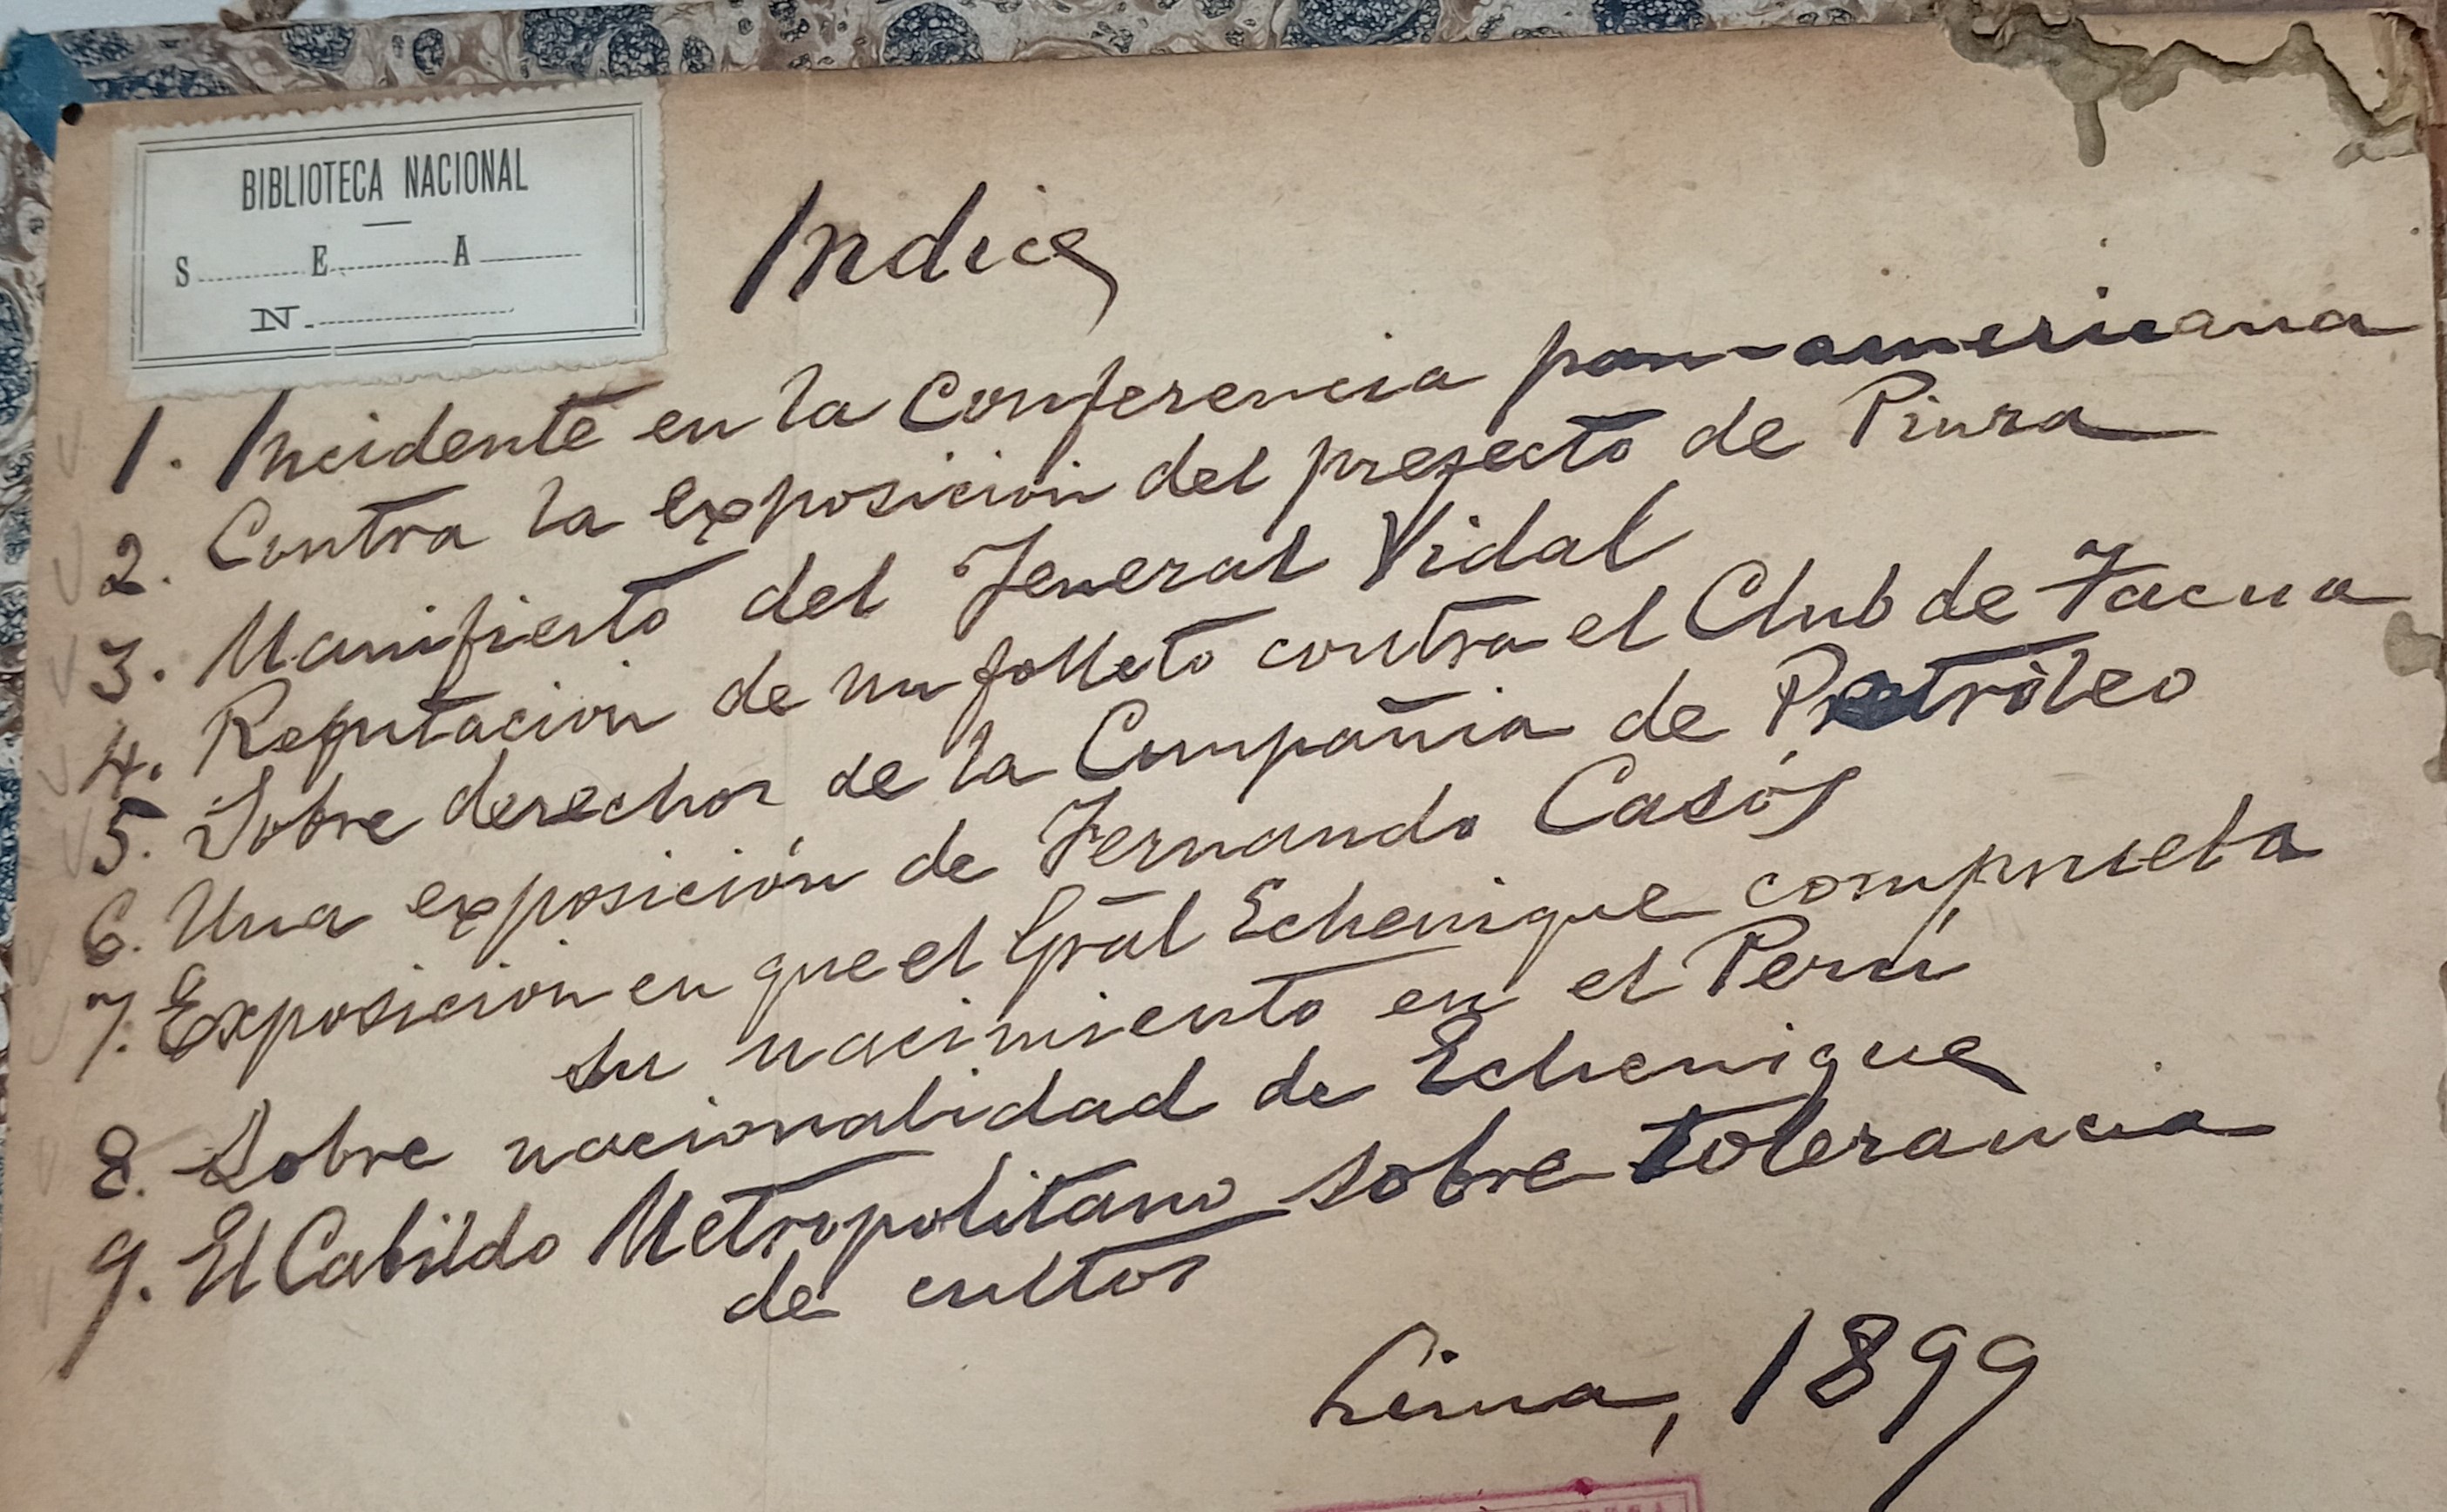 BIBLIOTECA NACIONAL
S E A
N.
Indice
1. Incidente en la Conferencia pan-americana
2. Contra la exposicion del prefecto de Piura
3. Manifiesto del Jeneral Vidal
4. Refutacion de un folleto contra el Club de Tacna
5. Sobre derechos de la Compañia de Petróleo
6. Una exposición de Fernando Casós
7. Exposicion en que el Gr̃al Echenique comprueba
su nacimiento en el Perú
8. Sobre nacionalidad de Echenique
9. El Cabildo Metropolitano sobre tolerancia
de cultos
Lima, 1899